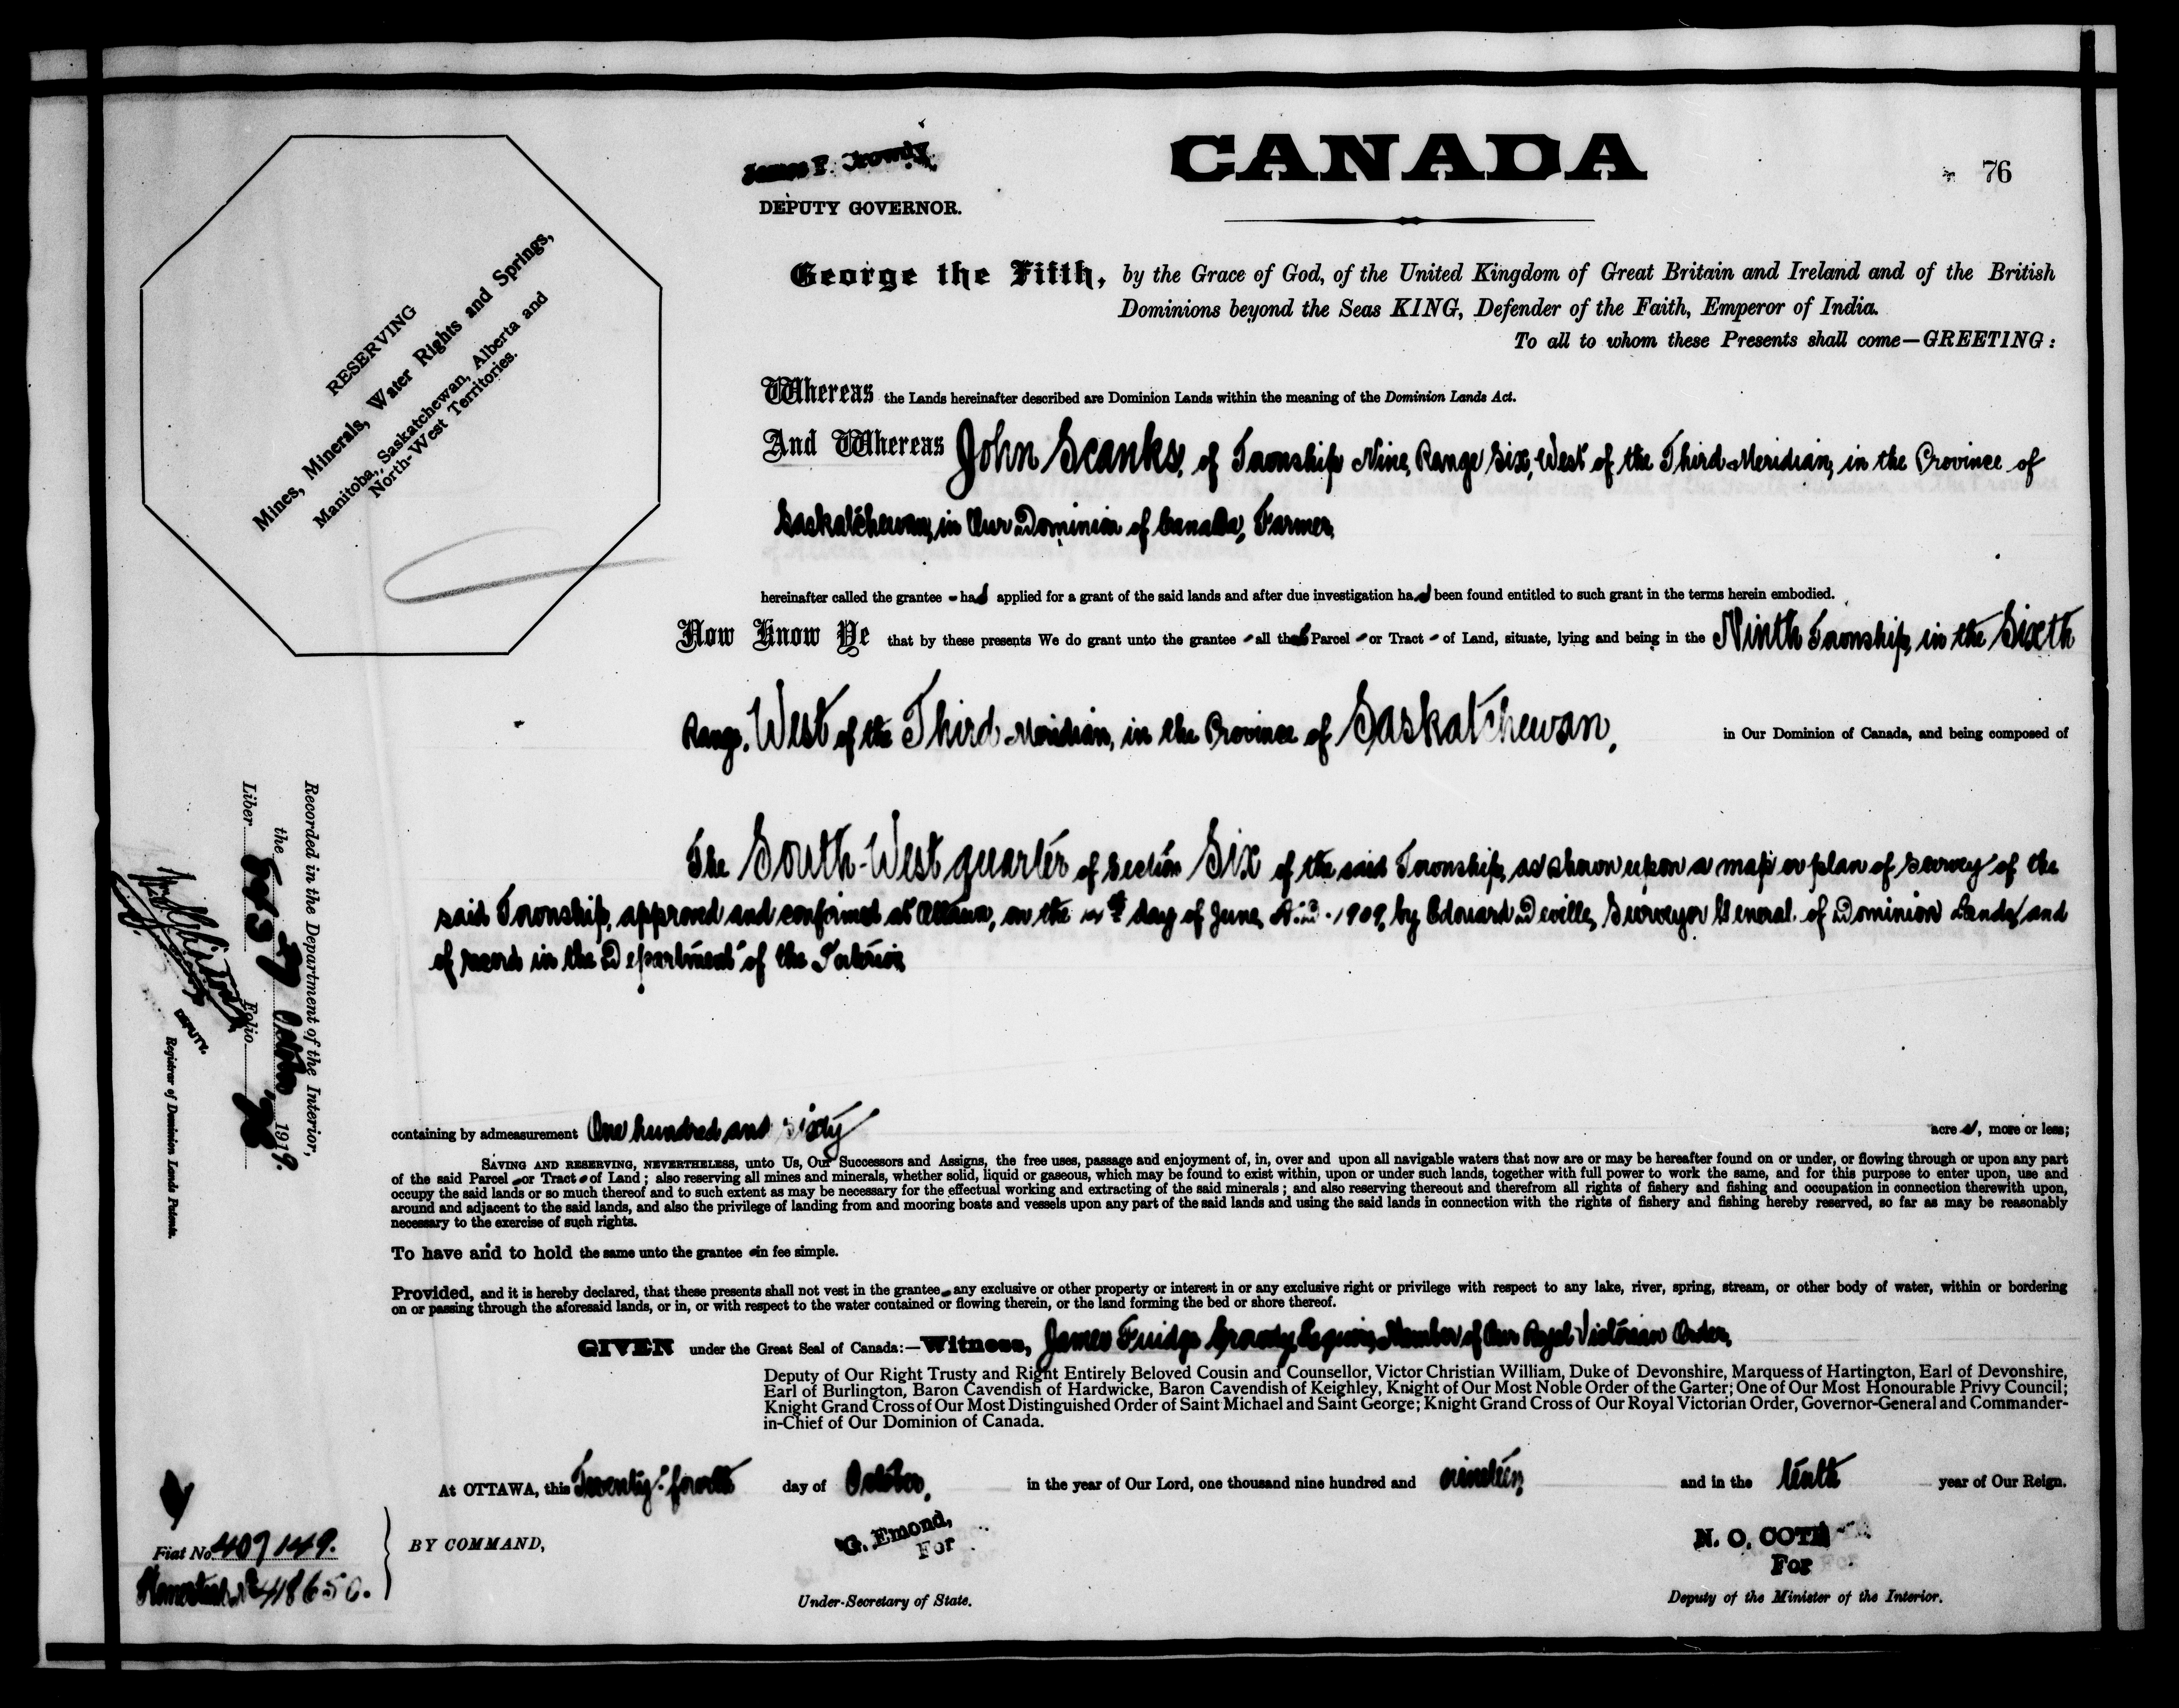 CANADA
76
DEPUTY GOVERNOR.
RESERVING
Mines, Minerals, Water Rights and Springs,
Manitoba, Saskatchewan, Alberta and
North-West Territories.
George the Fifth, by the Grace of God, of the United Kingdom of Great Britain and Ireland and of the British
Dominions beyond the Seas KING, Defender of the Faith, Emperor of India.
To all to whom these Presents shall come—GREETING:
Whereas the Lands hereinafter described are Dominion Lands within the meaning of the Dominion Lands Act.
And Whereas John Scanks, of Township Nine, Range Six, West of the Third Meridian, in the Province of
Saskatchewan, in Our Dominion of Canada, Farmer,
hereinafter called the grantee - has applied for a grant of the said lands and after due investigation has been found entitled to such grant in the terms herein embodied.
Now Know Ye that by these presents We do grant unto the grantee - all that Parcel - or Tract - of Land, situate, lying and being in the Ninth Township, in the Sixth
Range, West of the Third Meridian, in the Province of Saskatchewan, in Our Dominion of Canada, and being composed of
The South-West quarter of Section Six of the said Township, as shown upon a map or plan of survey of the
said Township, approved and confirmed at Ottawa, on the day of June, A.D. 1909, by Edouard Deville, Surveyor General of Dominion Lands, and
of record in the Department of the Interior,
containing by admeasurement One hundred and sixty acres, more or less;
SAVING AND RESERVING, NEVERTHELESS, unto Us, Our Successors and Assigns, the free uses, passage and enjoyment of, in, over and upon all navigable waters that now are or may be hereafter found on or under, or flowing through or upon any part
of the said Parcel - or Tract - of Land; also reserving all mines and minerals, whether solid, liquid or gaseous, which may be found to exist within, upon or under such lands, together with full power to work the same, and for this purpose to enter upon, use and
occupy the said lands or so much thereof and to such extent as may be necessary for the effectual working and extracting of the said minerals; and also reserving thereout and therefrom all rights of fishery and fishing and occupation in connection therewith upon,
around and adjacent to the said lands, and also the privilege of landing from and mooring boats and vessels upon any part of the said lands and using the said lands in connection with the rights of fishery and fishing hereby reserved, so far as may be reasonably
necessary to the exercise of such rights.
To have and to hold the same unto the grantee - in fee simple.
Provided, and it is hereby declared, that these presents shall not vest in the grantee - any exclusive or other property or interest in or any exclusive right or privilege with respect to any lake, river, spring, stream, or other body of water, within or bordering
on or passing through the aforesaid lands, or in, or with respect to the water contained or flowing therein, or the land forming the bed or shore thereof.
GIVEN under the Great Seal of Canada:—Witness, James Esquire, Member of Our Royal Victorian Order,
Deputy of Our Right Trusty and Right Entirely Beloved Cousin and Counsellor, Victor Christian William, Duke of Devonshire, Marquess of Hartington, Earl of Devonshire,
Earl of Burlington, Baron Cavendish of Hardwicke, Baron Cavendish of Keighley, Knight of Our Most Noble Order of the Garter; One of Our Most Honourable Privy Council;
Knight Grand Cross of Our Most Distinguished Order of Saint Michael and Saint George; Knight Grand Cross of Our Royal Victorian Order, Governor-General and Commander-
in-Chief of Our Dominion of Canada.
At OTTAWA, this Twenty-fourth day of October, in the year of Our Lord, one thousand nine hundred and nineteen and in the tenth year of Our Reign.
BY COMMAND,
G. Emond,
For
Under-Secretary of State.
N. O. COTÉ
For
Deputy of the Minister of the Interior.
Recorded in the Department of the Interior,
the October, 1919.
Liber Folio
DEPUTY.
Registrar of Dominion Lands Patents.
Fiat No. 409149.
Homestead